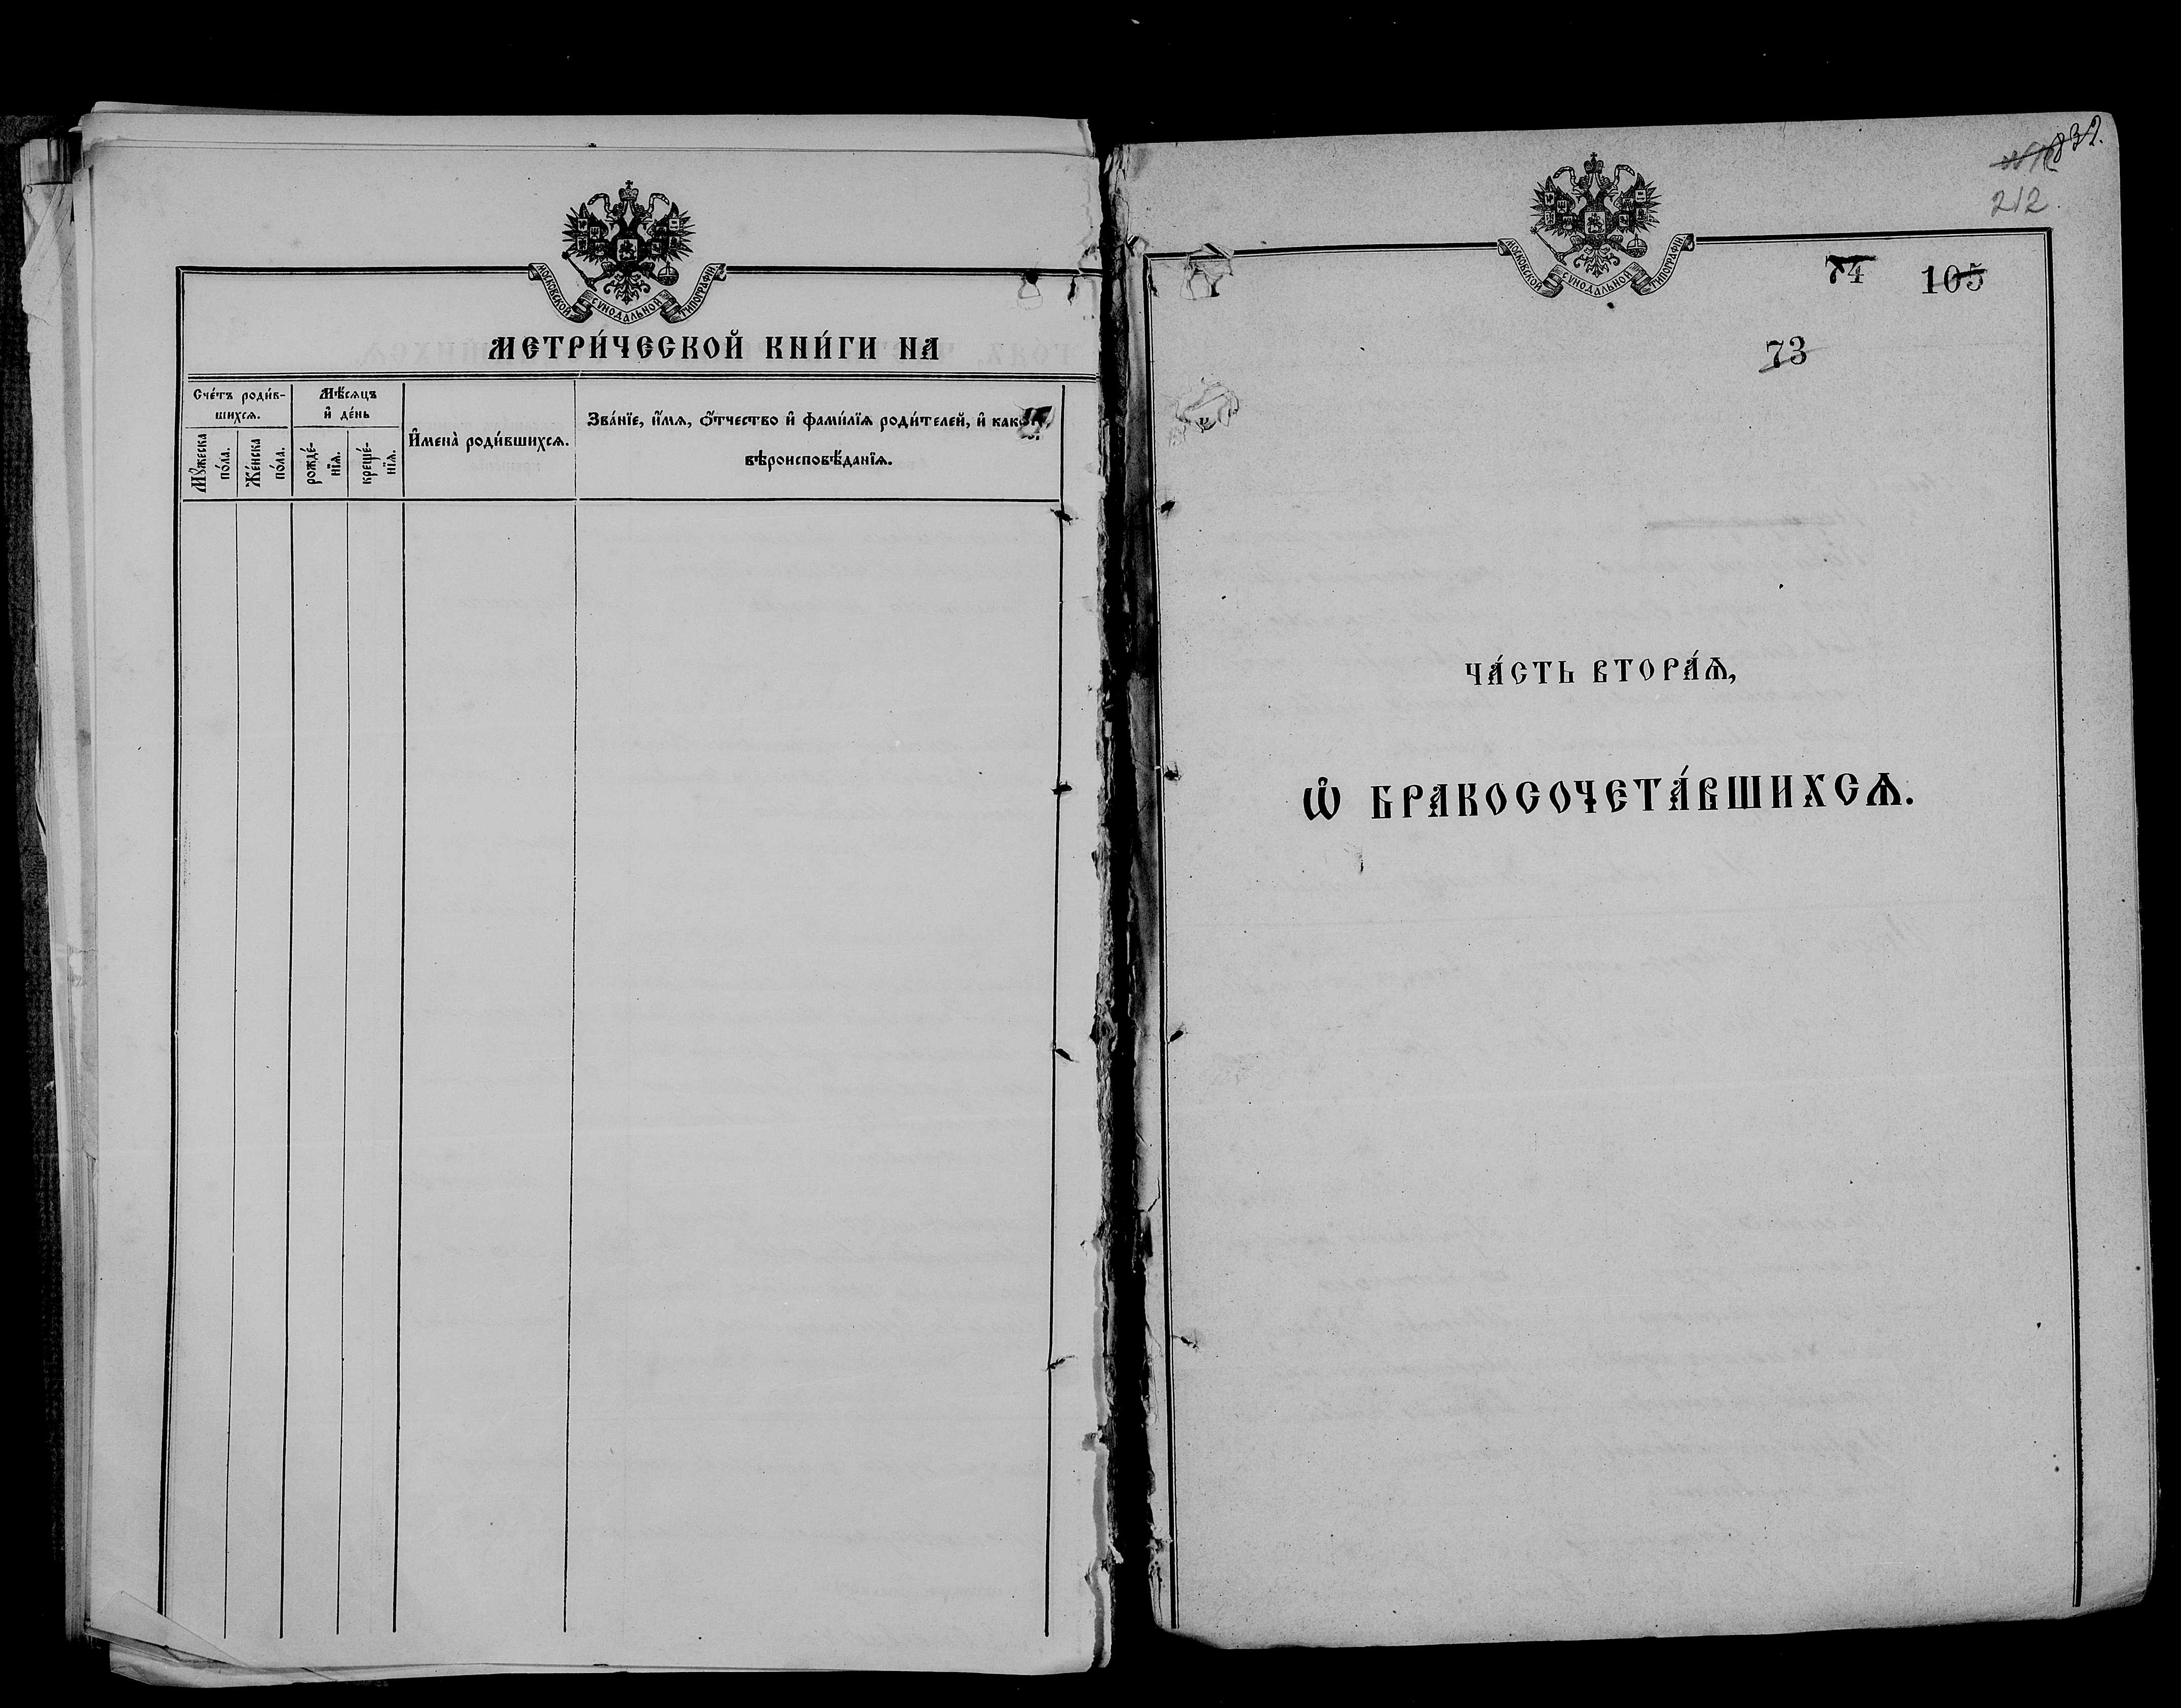 МОСКОВСКОЙ СѴНОДАЛЬНОЙ ТИПОГРАФІИ
МЕТРИ́ЧЕСКОЙ КНИ́ГИ НА
Сче́тъ роди́в-
шихсѧ.
Мѣ́сѧцъ
и҆ де́нь
И҆мена̀ роди́вшихсѧ.
Зва́нїе, и҆́мѧ, ѻ҆́тчество и҆ фами́лїѧ роди́телей, и҆ как
вѣроисповѣ́данїѧ.
Мꙋ́жеска
по́ла.
Же́нска
по́ла.
рожде́-
нїѧ.
креще́-
нїѧ.
832.
212
МОСКОВСКОЙ СѴНОДАЛЬНОЙ ТИПОГРАФІИ
74 105
73
ЧА́СТЬ ВТОРА́Ѧ,
Ѡ҆ БРАКОСОЧЕТА́ВШИХСѦ.